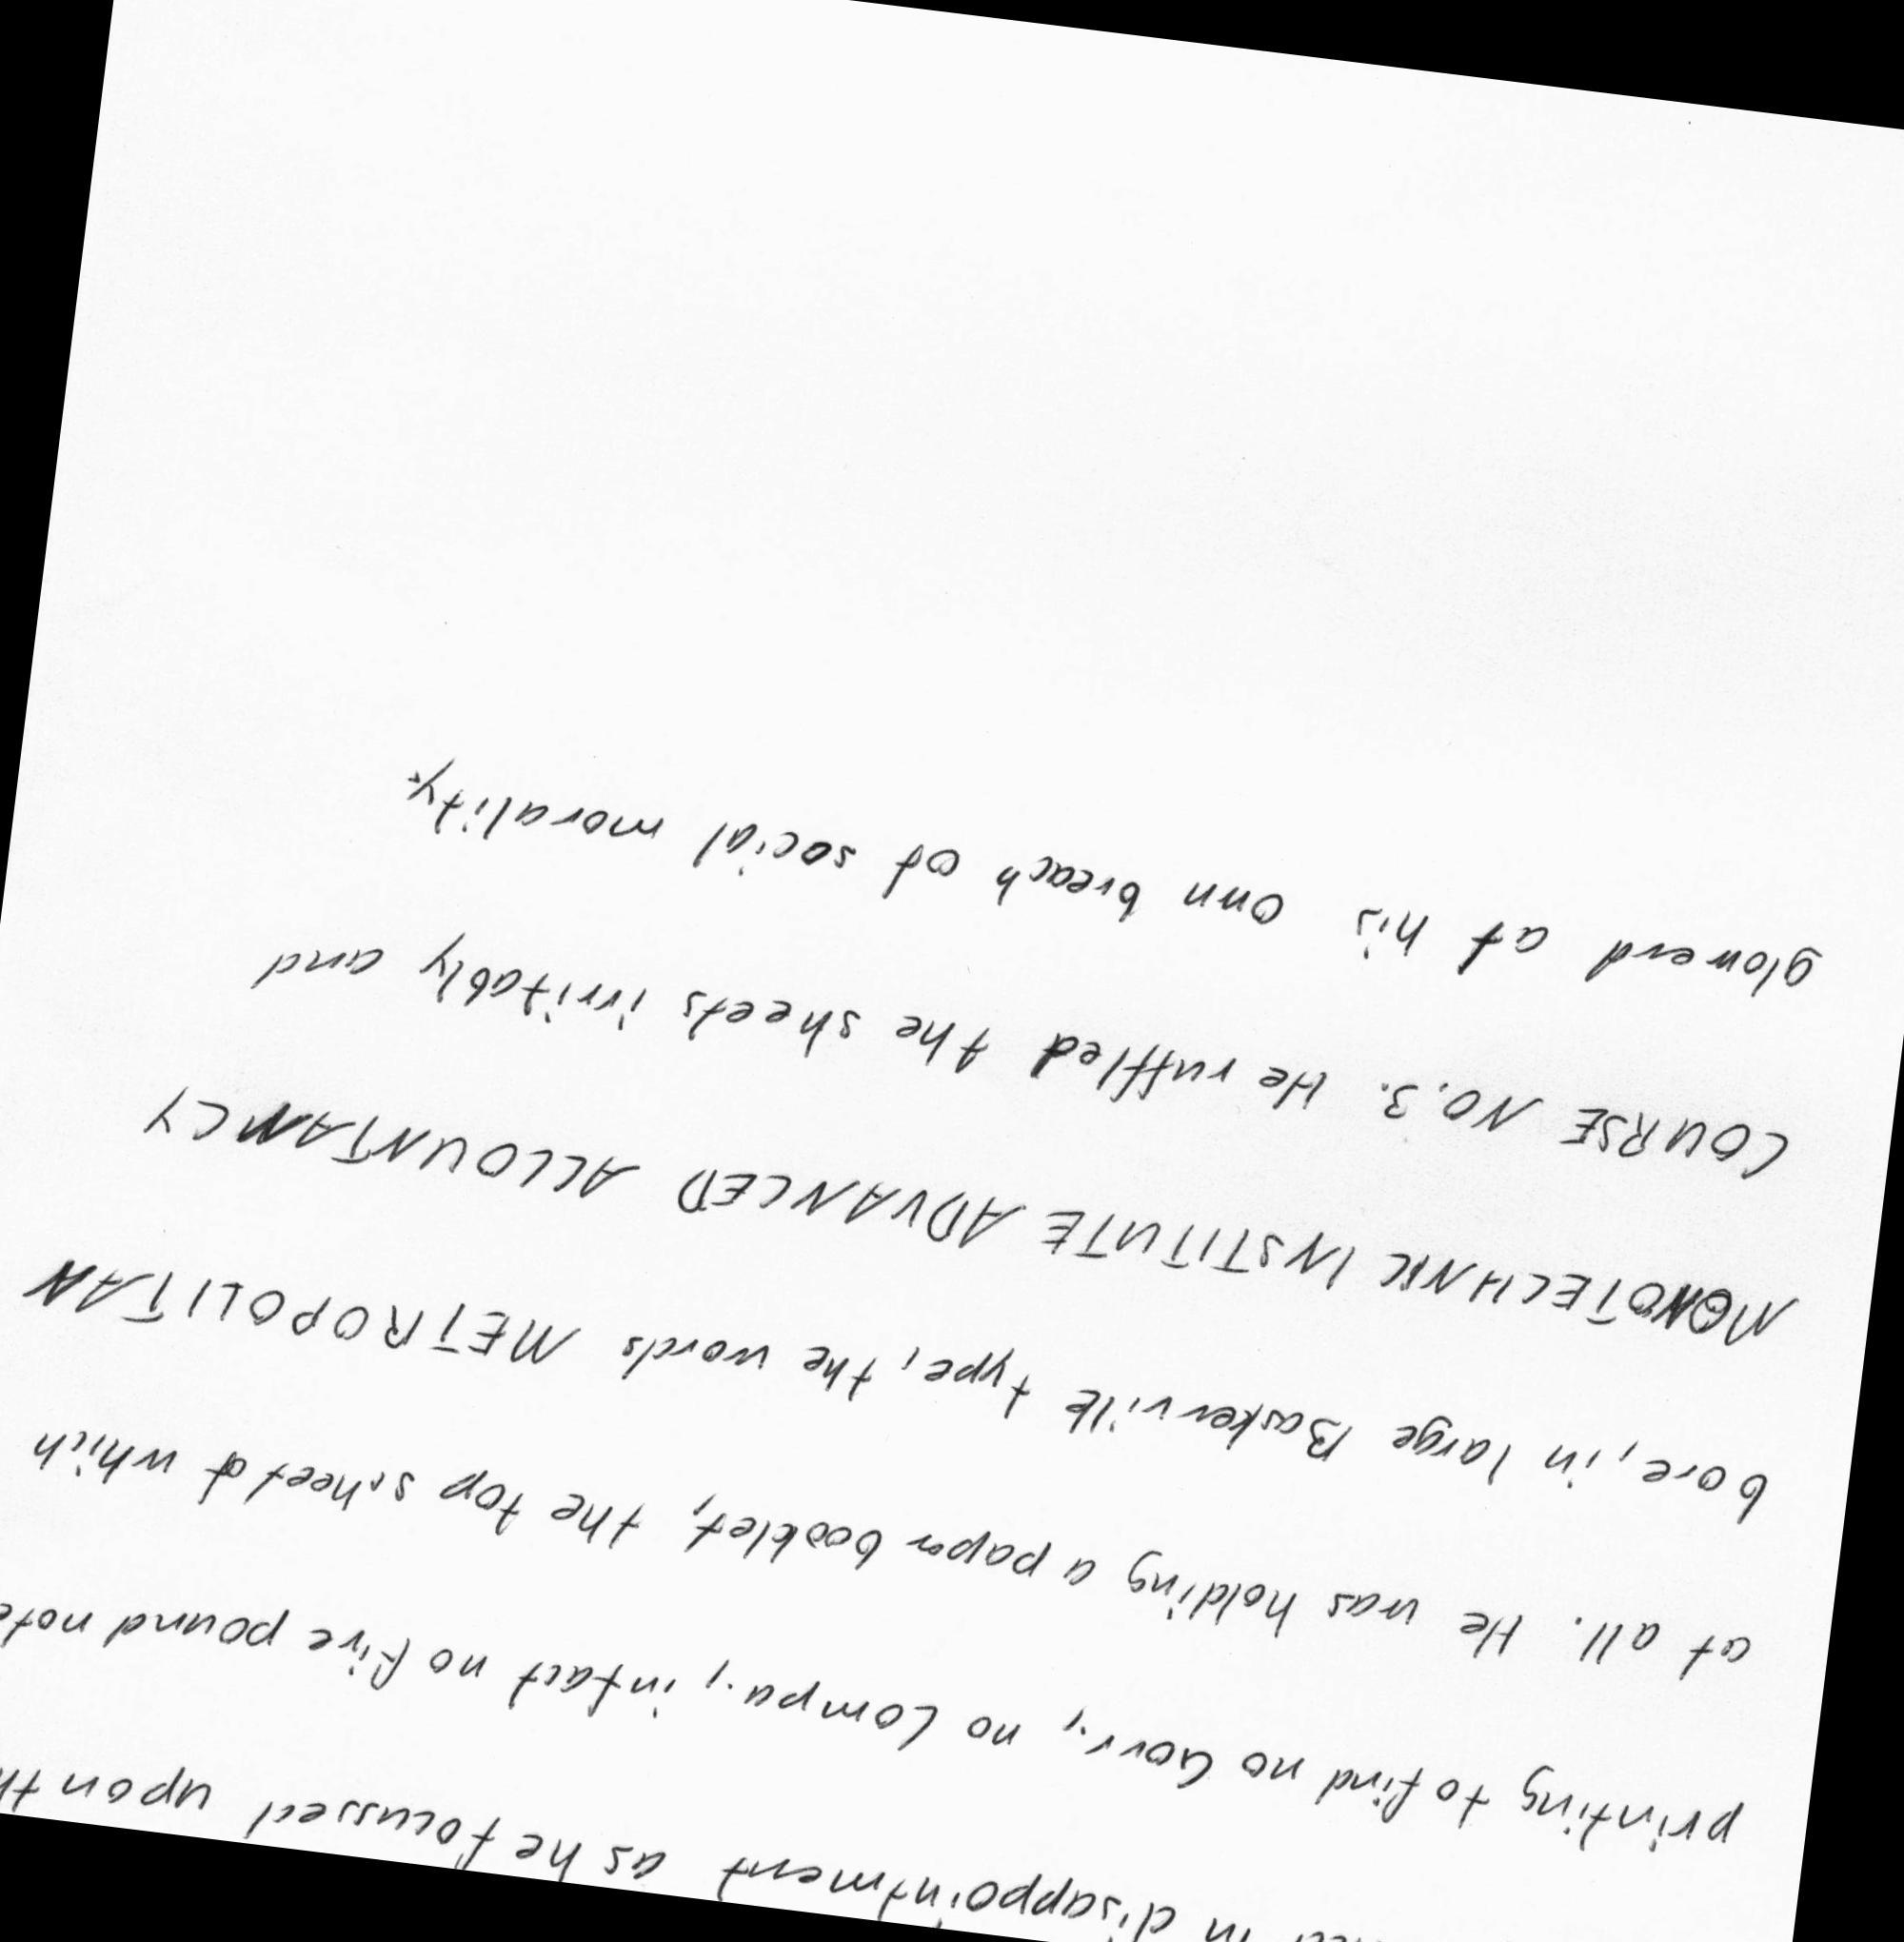 in disappointment as he focussed upon
printing to find no Govr., no Compa., infact no five pound note
at all. He was holding a paper booklet, the top sheet of which
bore, in large Baskerville type, the words METROPOLITAN
MONOTECHNIC INSTITUTE ADVANCED ACCOUNTANCY
COURSE NO.3. He ruffled the sheets irritably and
glowerd at his own breach of social morality.